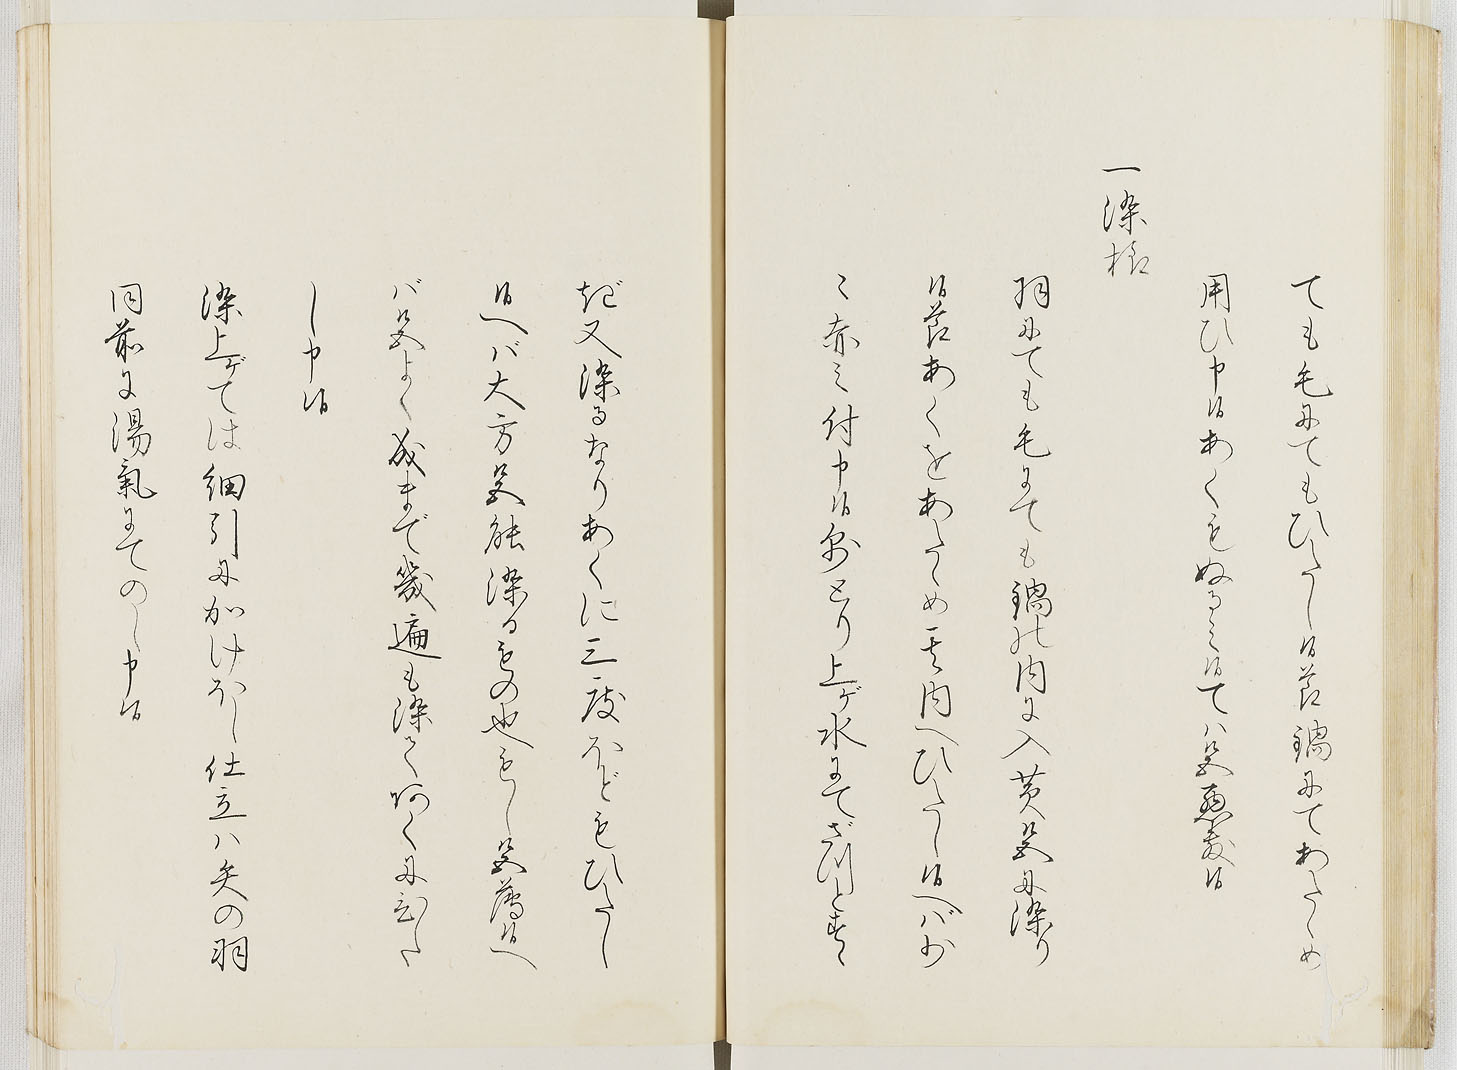 ても毛にてもひたし候節鍋にてあたゝめ
用ひ申候あくもぬるく候ては色悪敷候
一染様
羽にても毛にても鍋の内に入黄色に染り
候節あくをあたゝめ其内へひたし候へバ少
々赤ミ付申候則とり上ゲ水にてざつとすゝ
ぎ又染るなりあくに三度ほどもひたし
候へバ大方色能染るもの也もし色薄候へ
バ色よく成まで幾遍も染てあくにひた
し申候
染上ゲては細引に加けほし仕立ハ矢の羽
同前に湯氣にてのし申候